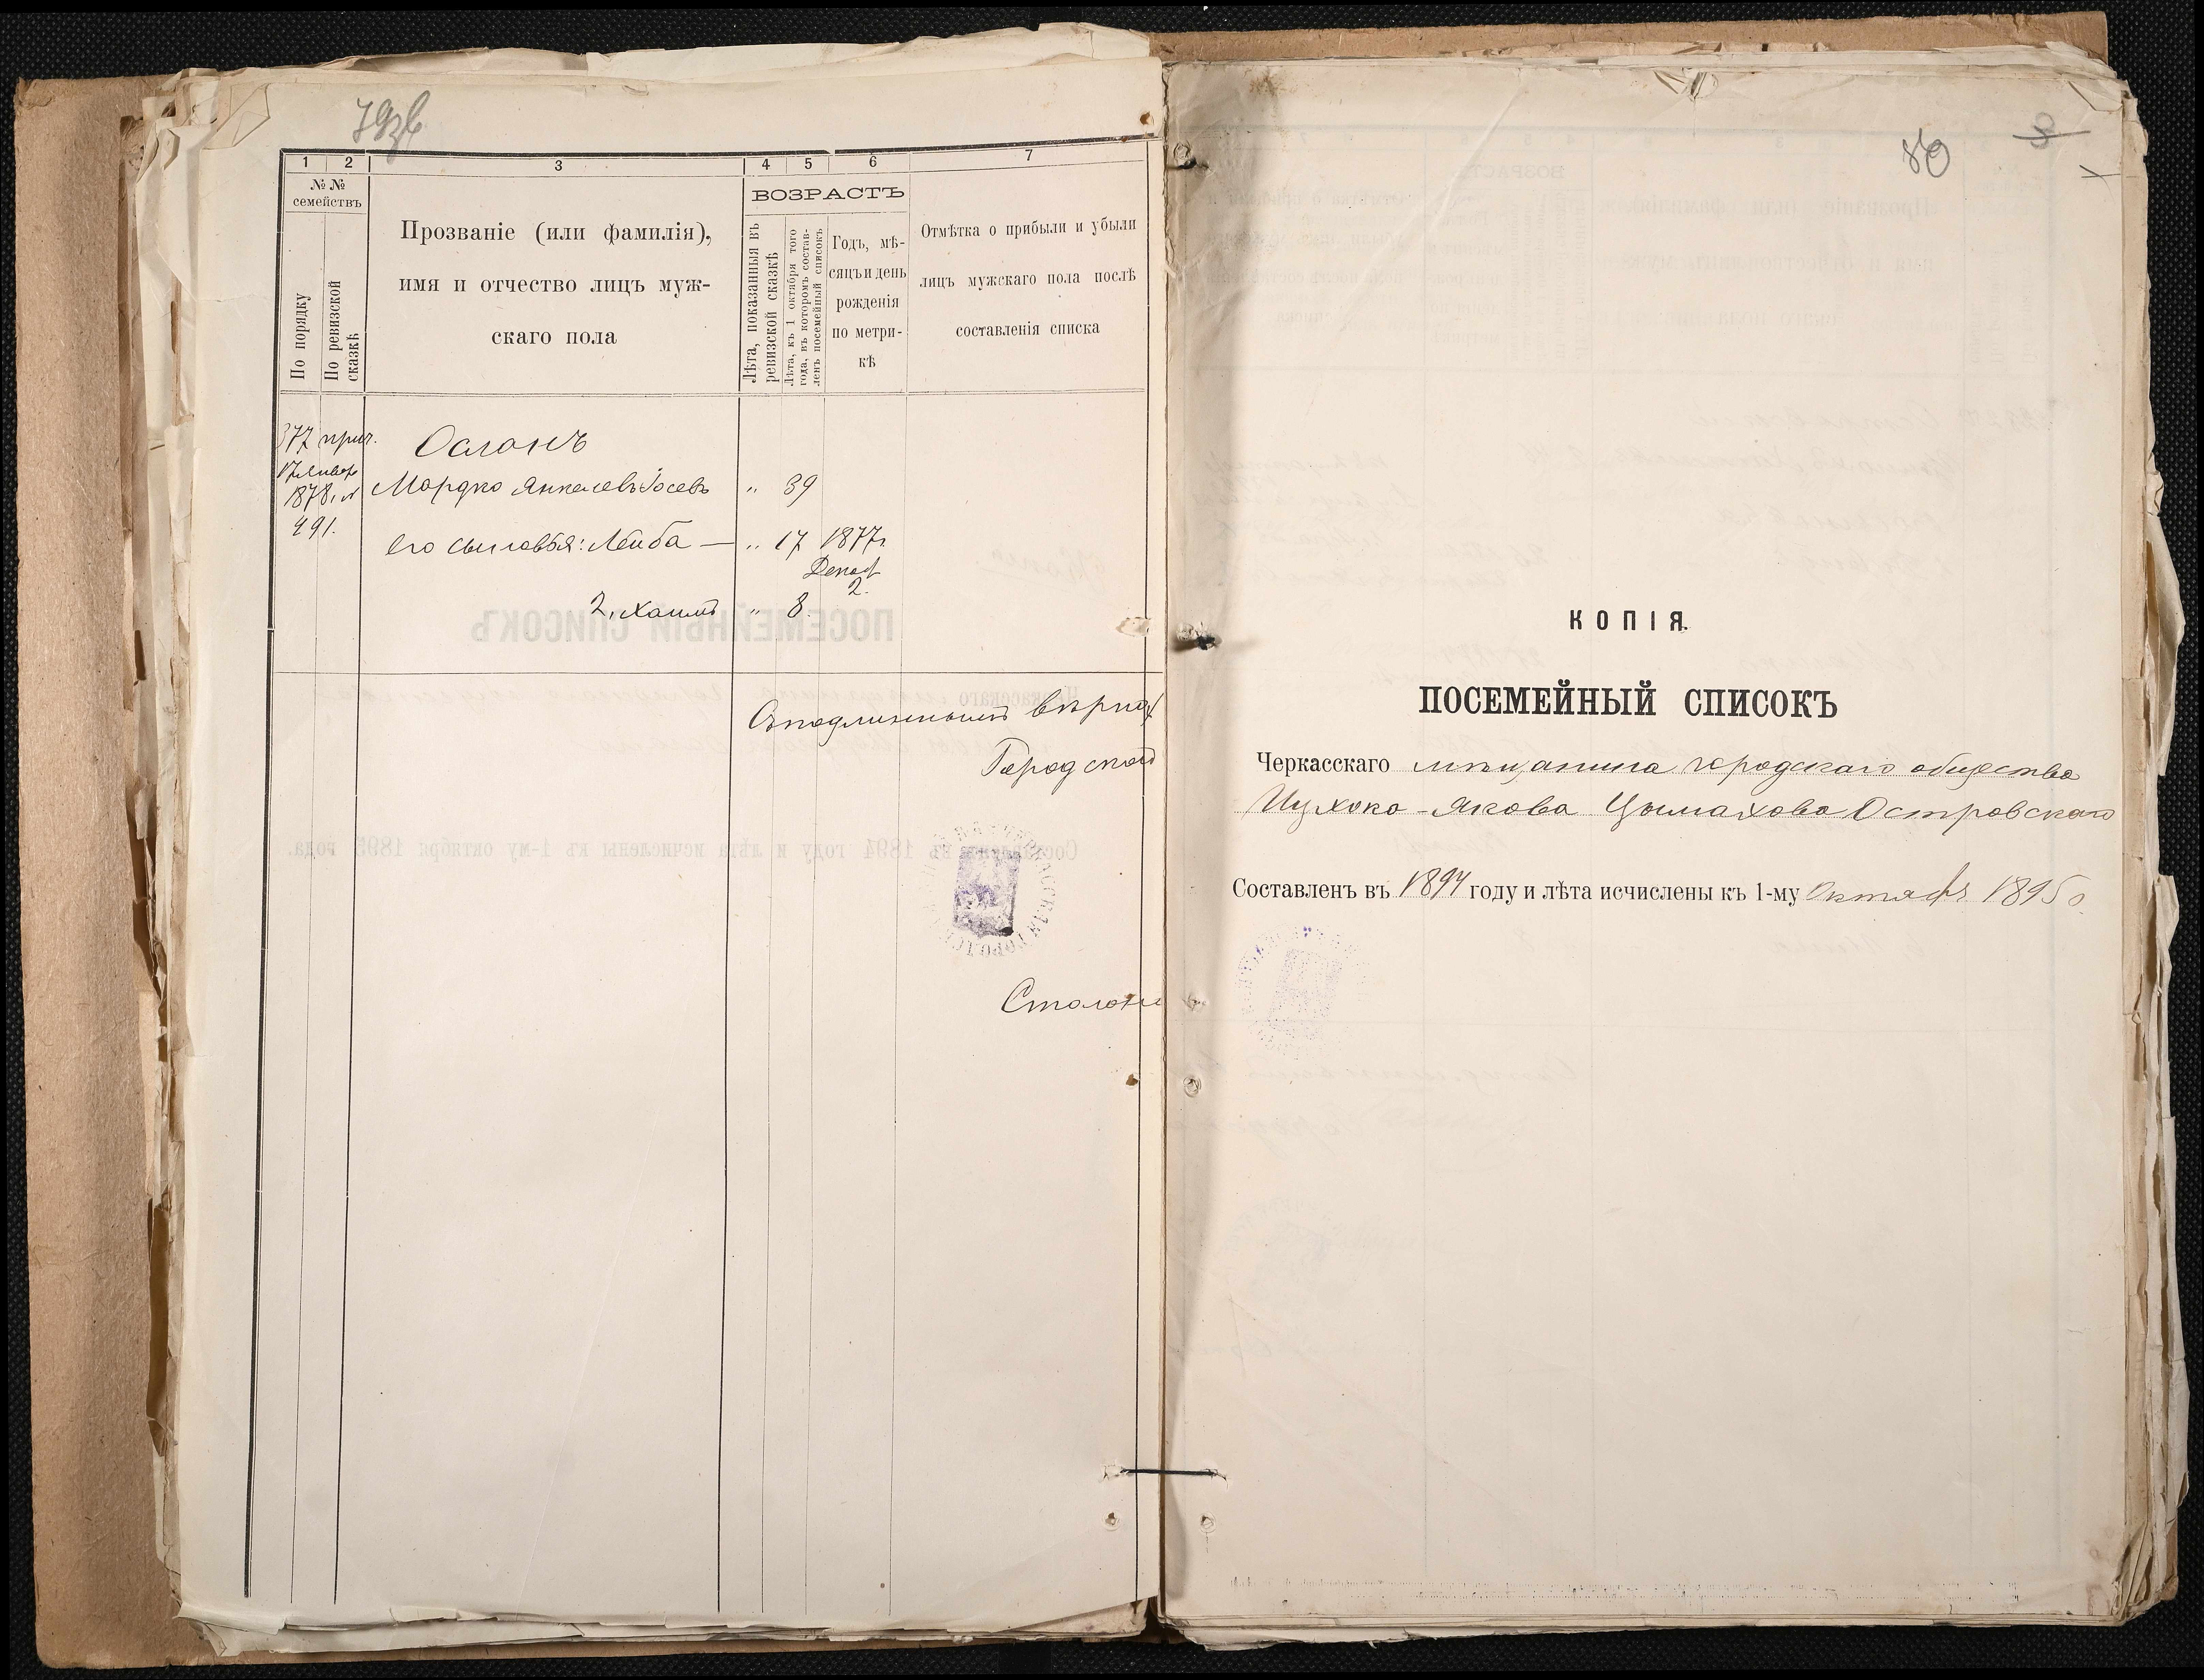 79 об
1 2 3 4 5 6 7
№№ семействъ
По порядку
По ревизской сказкѣ
Прозваніе (или фамилія),
имя и отчество лицъ муж-
скаго пола
ВОЗРАСТЪ
Лѣта, показанныя въ
ревизской сказкѣ
Лѣта, къ 1 октября того
года, въ которомъ состав-
ленъ посемейный списокъ
Годъ, мѣ-
сяцъ и день
рожденія
по метри-
кѣ
Отмѣтка о прибыли и убыли
лицъ мужскаго пола послѣ
составленія списка
377 прич. Ослонъ
17 Январ
1878, № Мордко Янкелевъ Іосевъ „ 39
491.
его сыновья: Лейба — „ 17 1877 г
Декаб
2.
2, Хаимъ „ 8.
Съ подлиннымъ вѣрно
Городской
Столон
80
8
КОПІЯ.
ПОСЕМЕЙНЫЙ СПИСОКЪ
Черкасскаго мѣщанина городскаго общества
Ицхоко-Якова Цымахова Островскаго
Составленъ въ 1894 году и лѣта исчислены къ 1-му Октябр 1895 г.